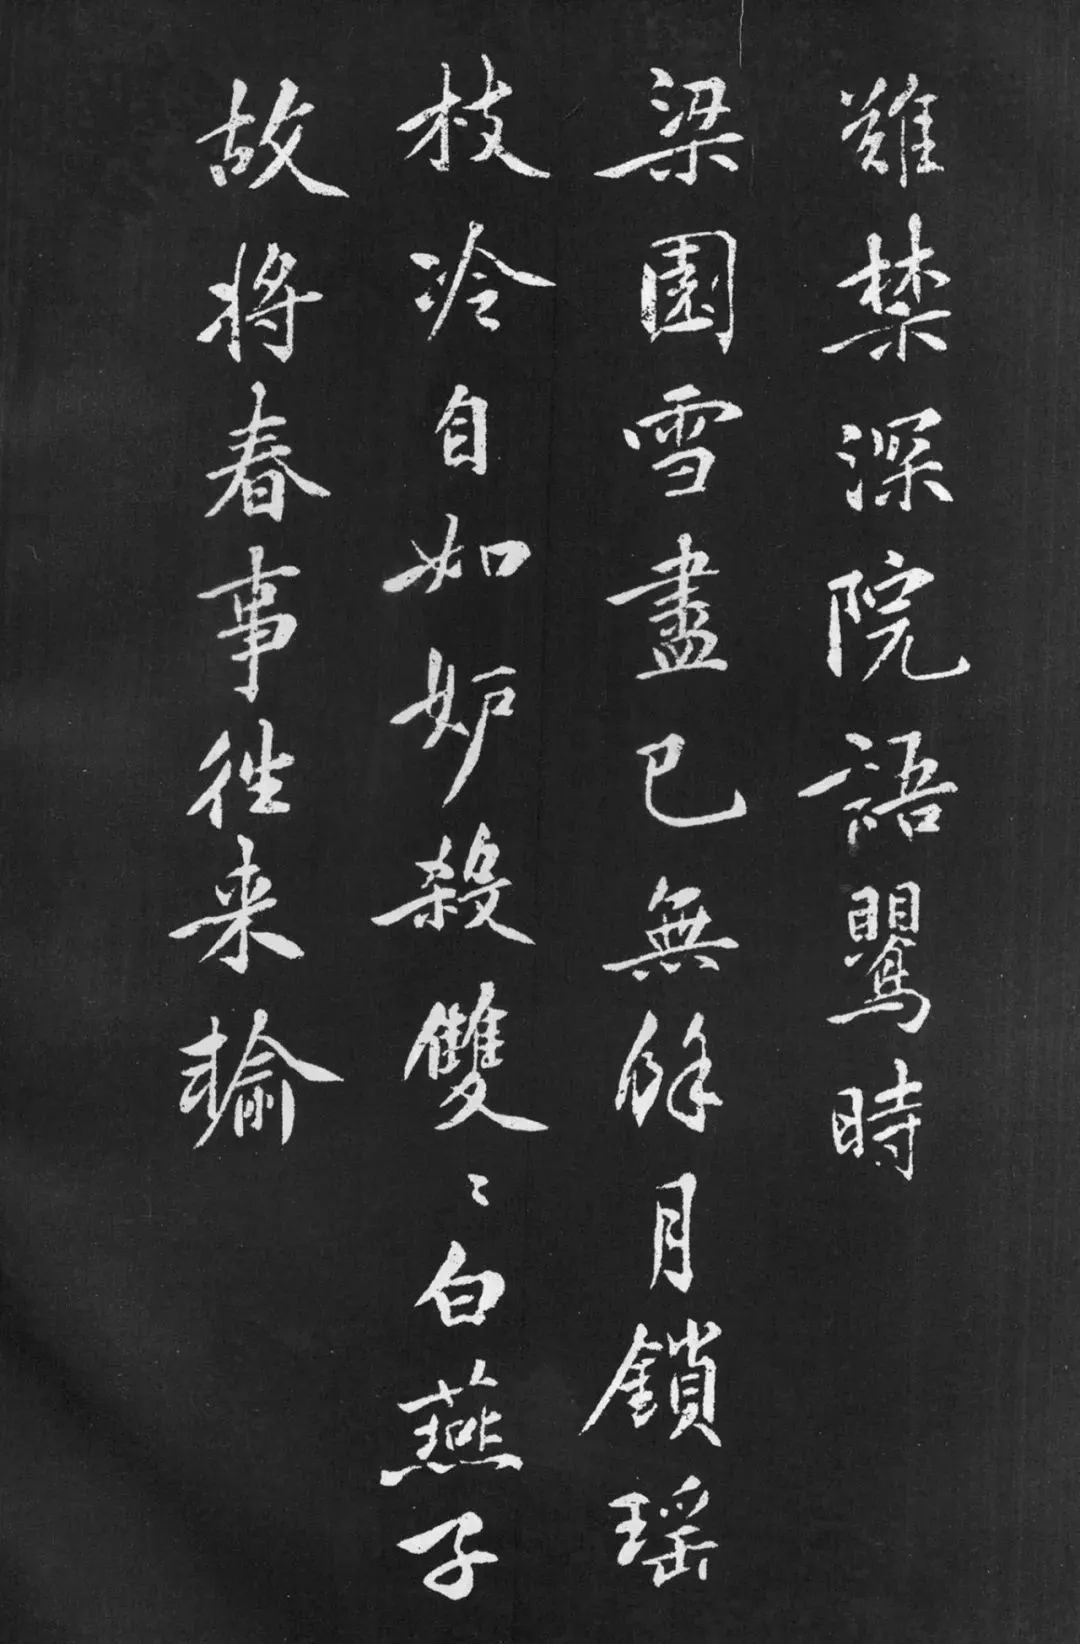 難禁深院語鸎時
梁園雪盡已無餘月鎖瑶
枝冷自如妒殺雙〻白燕子
故将春事往来輸